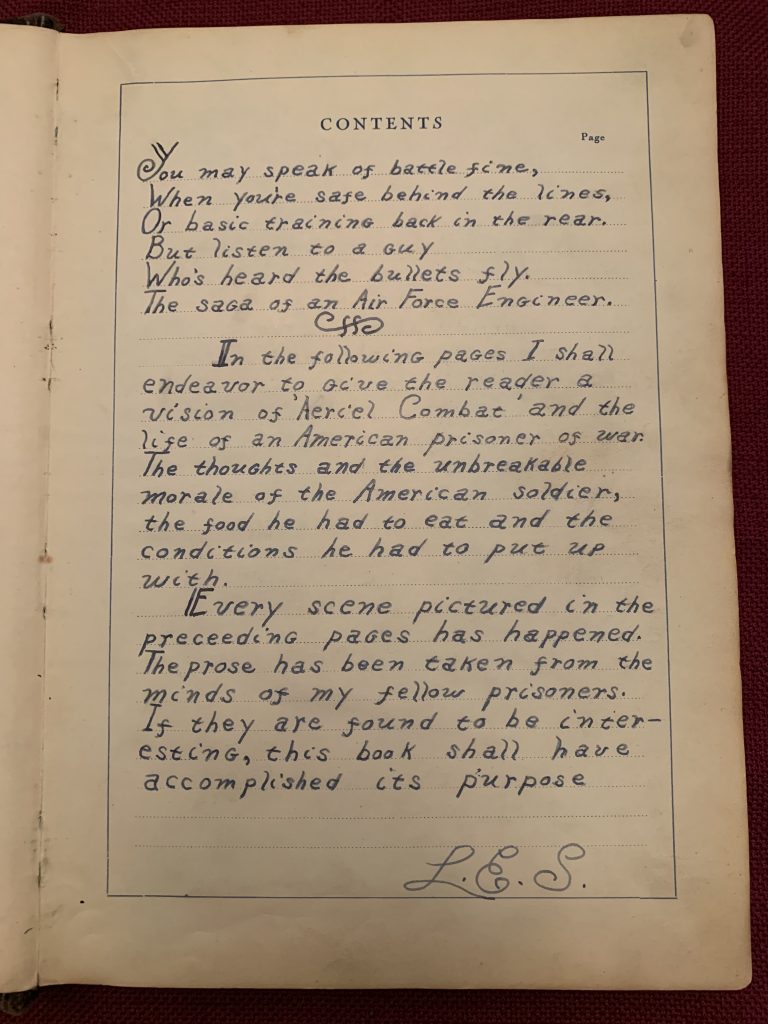 CONTENTS
Page
You may speak of battle fine,
When you're safe behind the lines,
Or basic training back in the rear.
But listen to a guy
Who's heard the bullets fly.
The saga of an Air Force Engineer.
In the following pages I shall
endeavor to give the reader a
vision of 'Aeriel Combat' and the
life of an American prisoner of war.
The thoughts and the unbreakable
morale of the American soldier,
the food he had to eat and the
conditions he had to put up
with.
Every scene pictured in the
preceeding pages has happened.
The prose has been taken from the
minds of my fellow prisoners.
If they are found to be inter-
esting, this book shall have
accomplished its purpose
L.E.S.